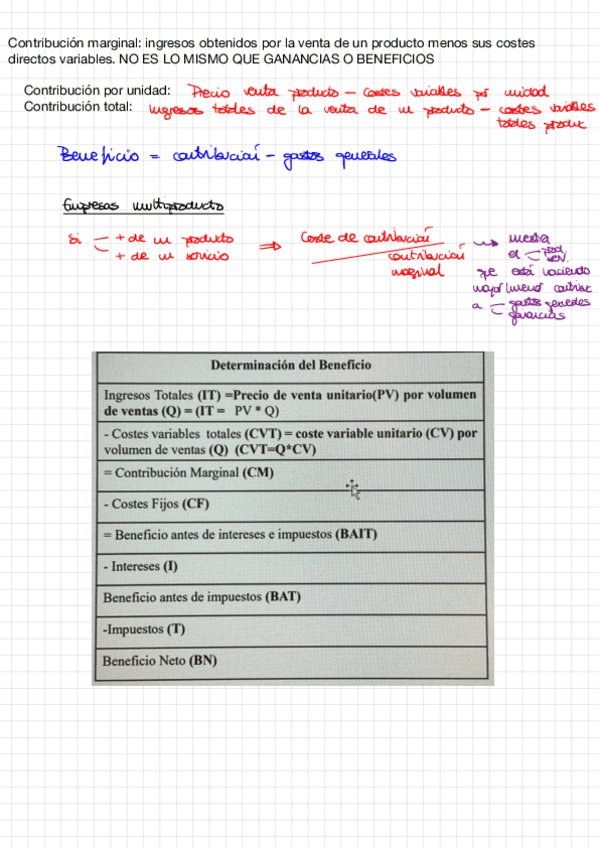 Contribución marginal: ingresos obtenidos por la venta de un producto menos sus costes
directos variables. NO ES LO MISMO QUE GANANCIAS O BENEFICIOS
Contribución por unidad: Precio venta producto - costes variables por unidad
Contribución total: Ingresos totales de la venta de un producto - costes variables
totales produc
Beneficio = contribución - gastos generales
Empresas multiproducto
Si + de un producto
+ de un servicio
⇒ Coste de contribución
contribución
marginal
→ muestra
el prod
serv.
que está haciendo
mayor/menor contribuc
a gastos generales
ganancias
Determinación del Beneficio
Ingresos Totales (IT) =Precio de venta unitario(PV) por volumen
de ventas (Q) = (IT = PV * Q)
- Costes variables totales (CVT) = coste variable unitario (CV) por
volumen de ventas (Q) (CVT=Q*CV)
= Contribución Marginal (CM)
- Costes Fijos (CF)
= Beneficio antes de intereses e impuestos (BAIT)
- Intereses (I)
Beneficio antes de impuestos (BAT)
-Impuestos (T)
Beneficio Neto (BN)